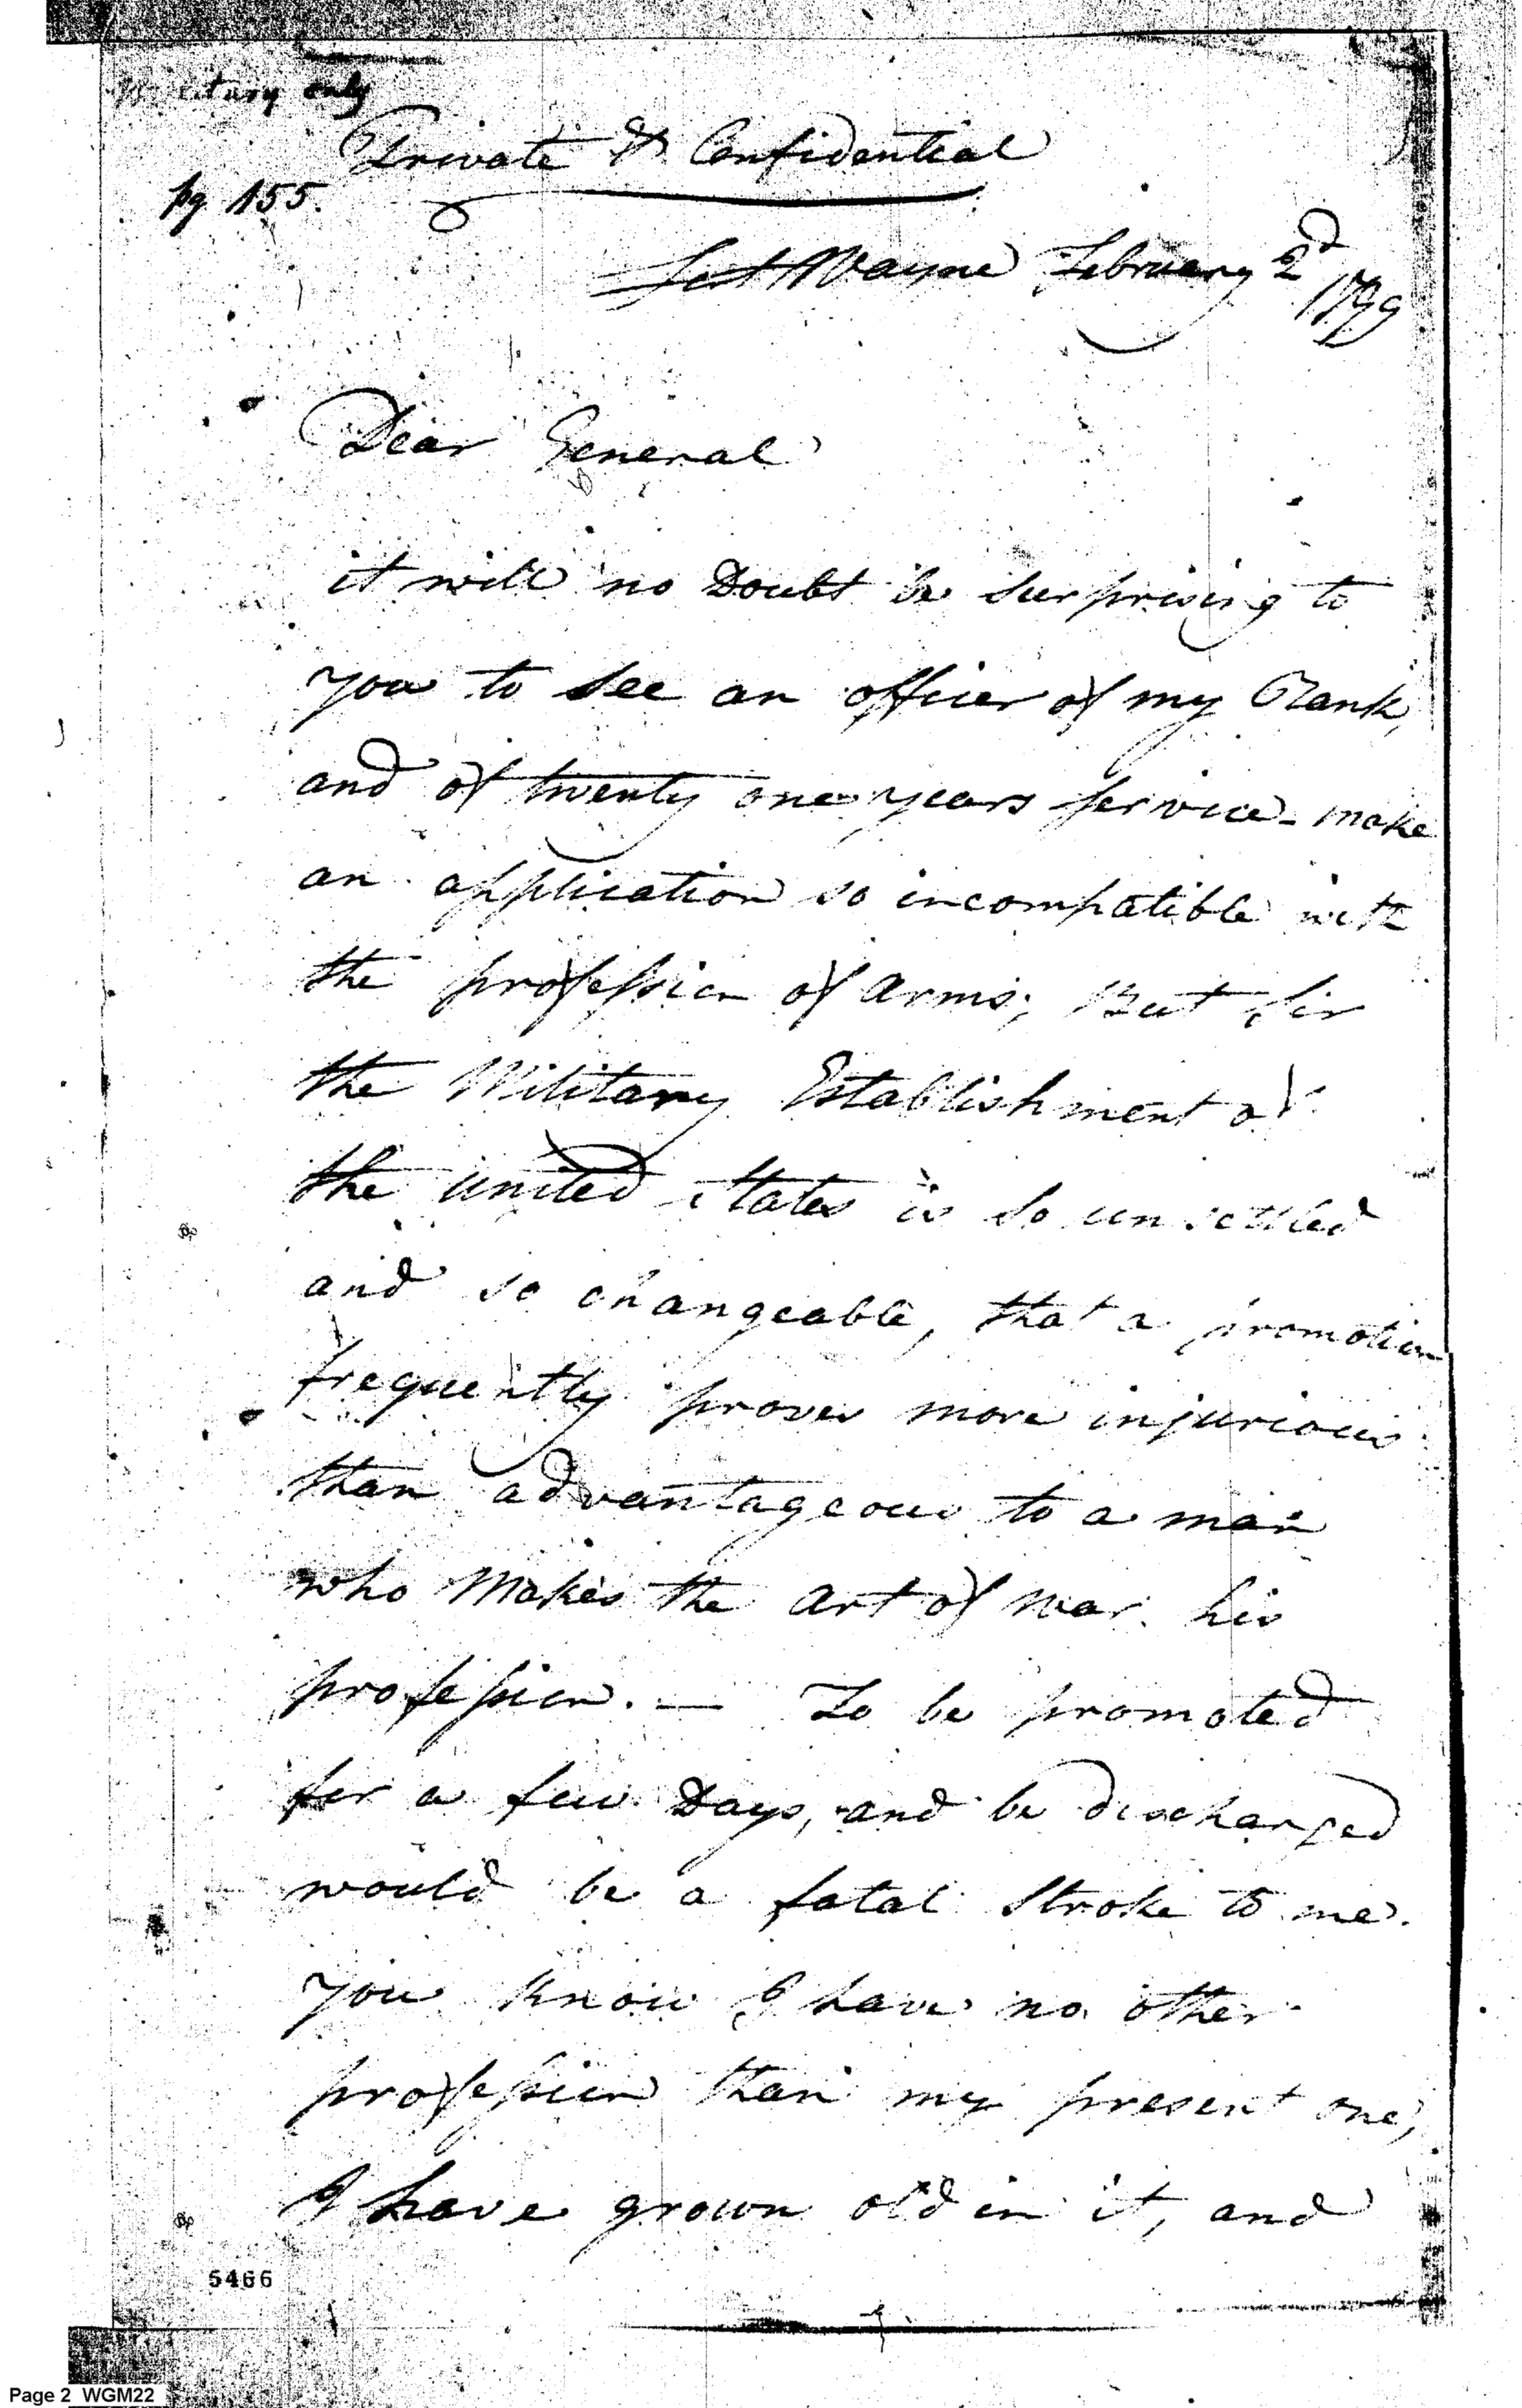 Military only
Private & Confidential
pg. 155.
Fort Wayne February 2d
1799
Dear General
it will no Doubt be surprising to
you to see an officer of my Rank,
and of twenty one years service - make
an application so incompatible with
the profession of arms; But Sir
the Military Establishment of
the united States is so unsettled
and so changeable, that a promotion
frequently proves more injurious
than advantageous to a man
who Makes the art of war his
profession. — To be promoted
for a few Days, and be discharged
would be a fatal Stroke to me.
You know I have no other
profession than my present one,
I have grown old in it, and
5466
Page 2 WGM22